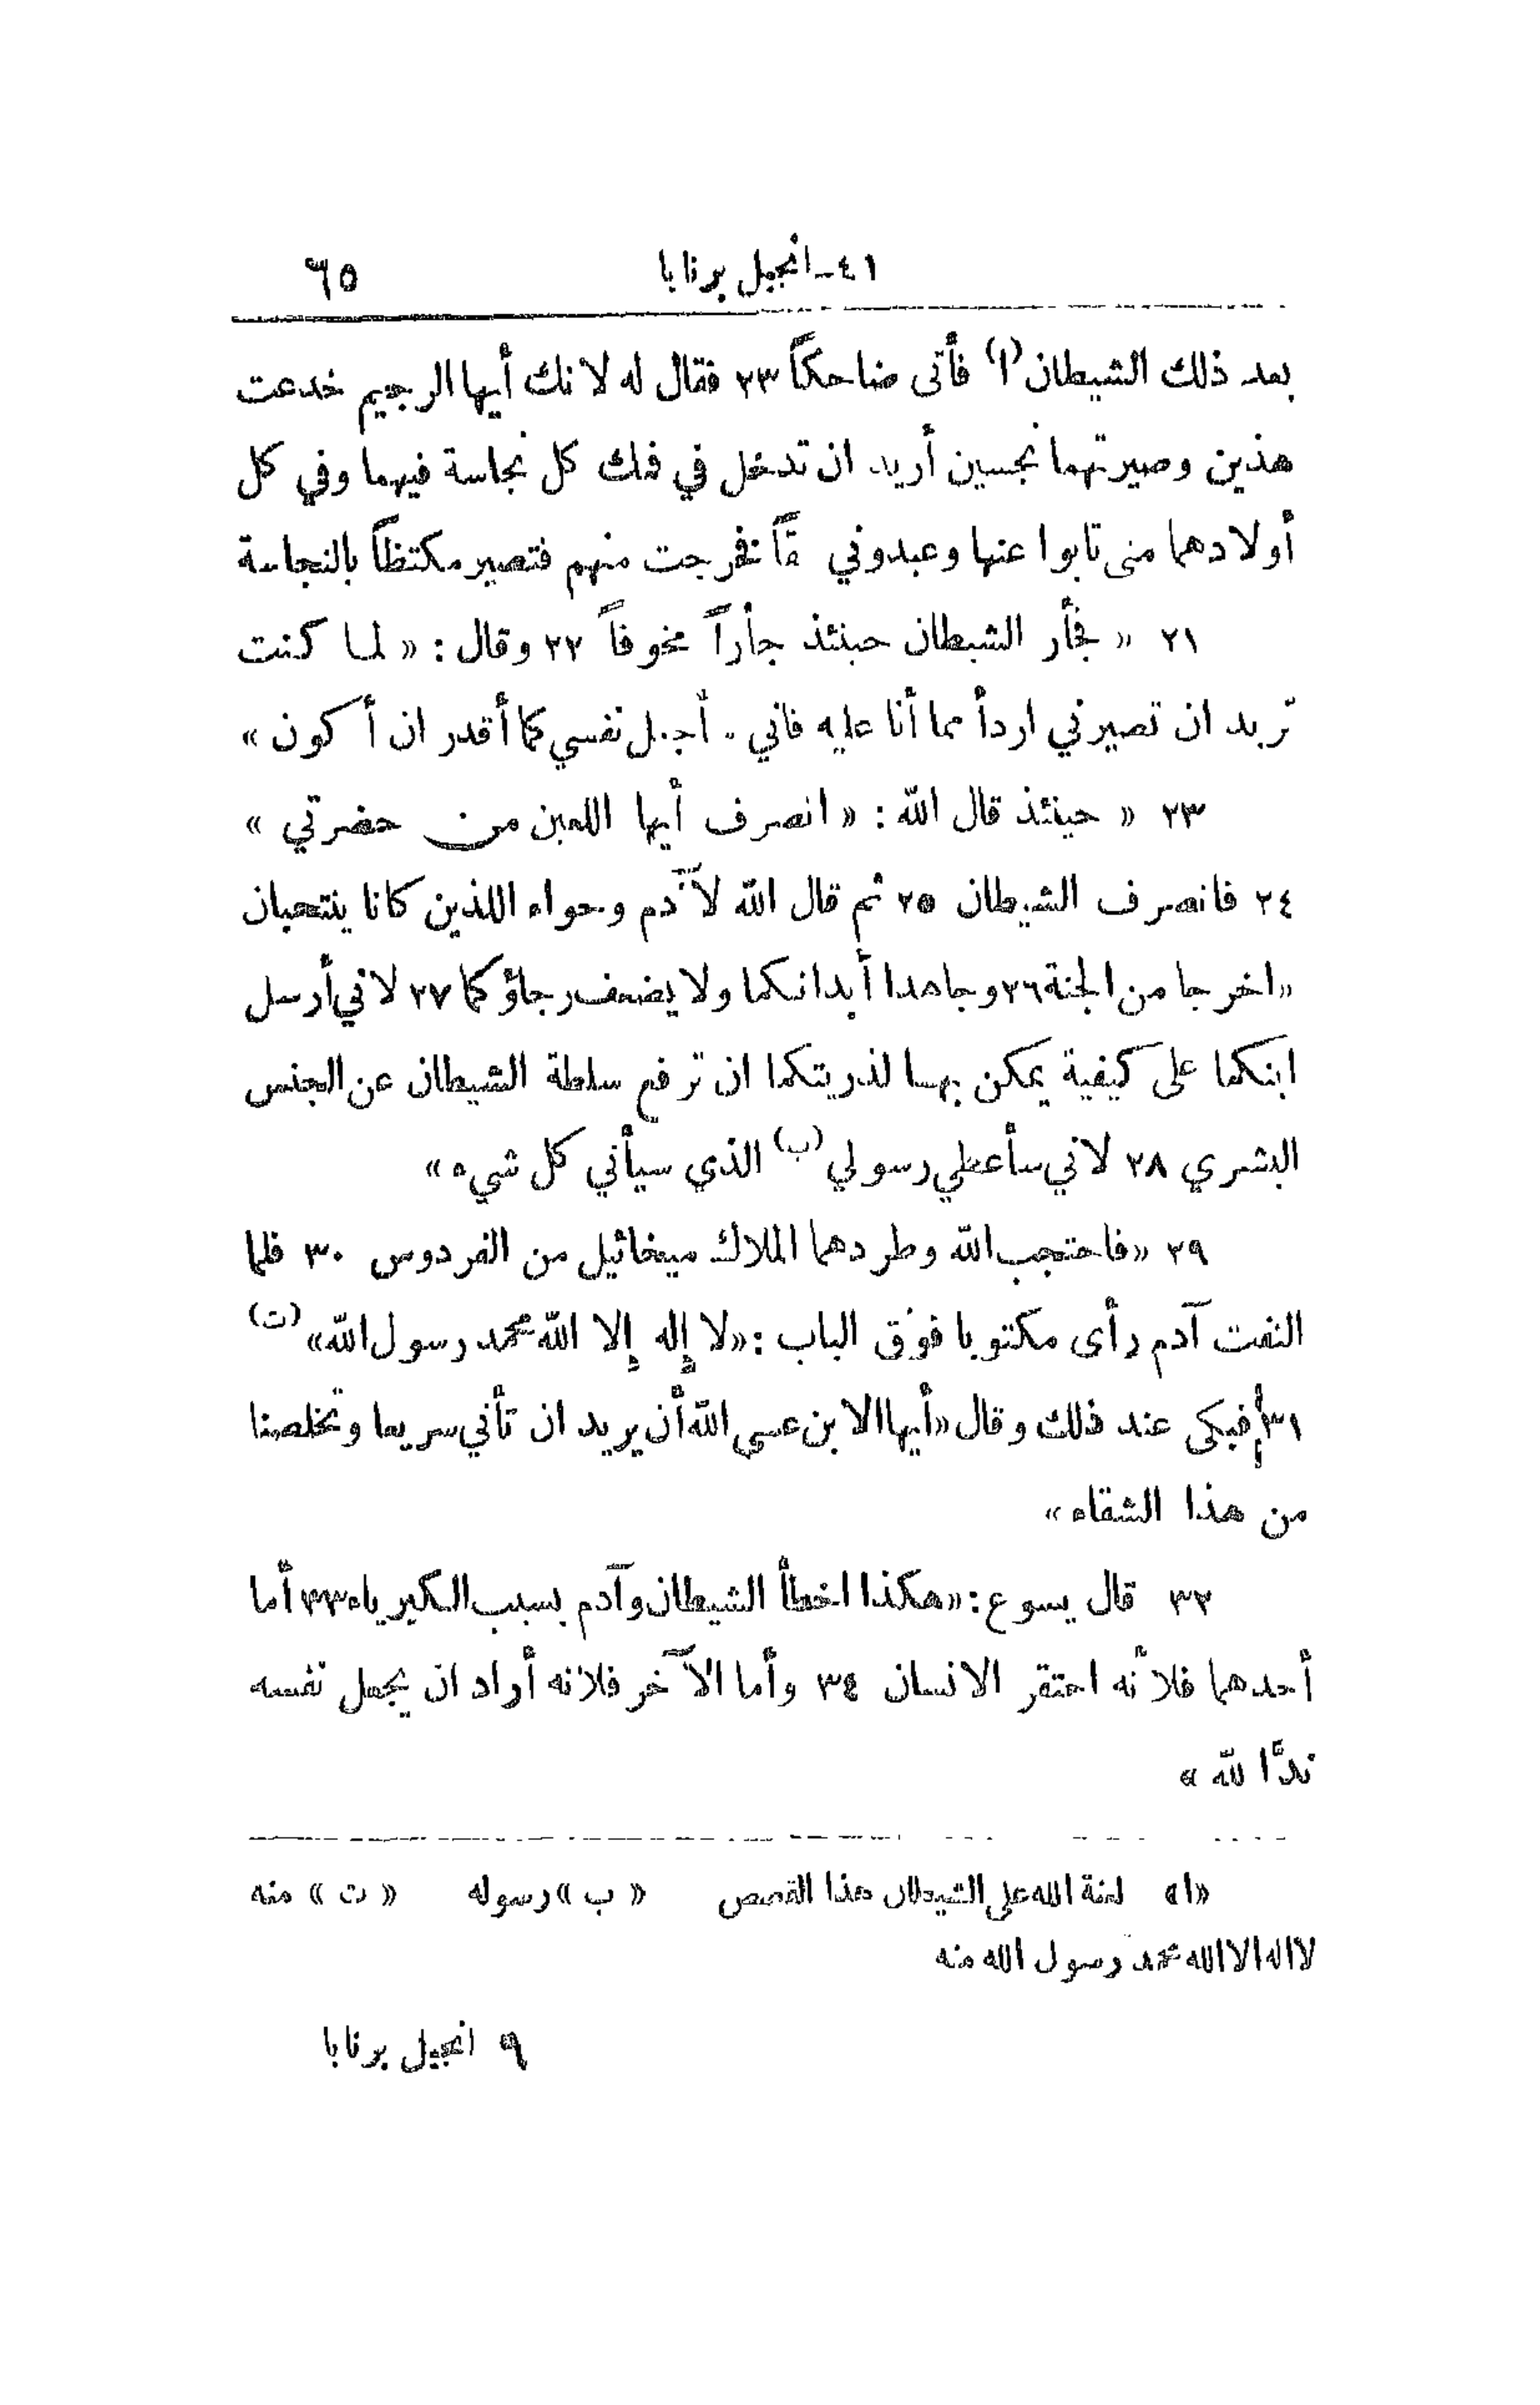 ٤١ - انجيل برنابا ٦٥
بعد ذلك الشيطان (ا) فأتى ضاحكاً ٢٣ فقال له لانك أيها الرجيم خدعت
هذين وصيرتهما نجسين أريد ان تدخل في فمك كل نجاسة فيهما وفي كل
أولادهما متى تابوا عنها وعبدوني حقاً فخرجت منهم فتصير مكتظاً بالنجاسة
٢١ « فجأر الشيطان حينئذ جأراً مخوفاً ٢٢ وقال : « لما كنت
تريد ان تصيرني اردأ مما أنا عليه فاني سأجعل نفسي كما أقدر ان أكون »
٢٣ « حينئذ قال الله : « انصرف أيها اللعين من حضرتي »
٢٤ فانصرف الشيطان ٢٥ ثم قال الله لآدم وحواء اللذين كانا ينتحبان
« اخرجا من الجنة ٢٦ وجاهدا أبدانكما ولا يضعف رجاؤكما ٢٧ لاني أرسل
ابنكما على كيفية يمكن بها لذريتكما ان ترفع سلطة الشيطان عن الجنس
البشري ٢٨ لاني سأعطي رسولي (ب) الذي سيأتي كل شيء »
٢٩ « فاحتجب الله وطردهما الملاك ميخائيل من الفردوس ٣٠ فلما
التفت آدم رأى مكتوبا فوق الباب : « لا إله إلا الله محمد رسول الله » (ت)
٣١ فبكى عند ذلك وقال « أيها الابن عسى الله أن يريد ان تأتي سريعا وتخلصنا
من هذا الشقاء »
٣٢ قال يسوع : « هكذا اخطأ الشيطان وآدم بسبب الكبرياء ٣٣ أما
أحدهما فلأنه احتقر الانسان ٣٤ وأما الآخر فلانه أراد ان يجعل نفسه
ندًّا لله »
« ا » لعنة الله على الشيطان هذا القصص « ب » رسوله « ت » منه
لا اله الا الله محمد رسول الله منه
٩ انجيل برنابا